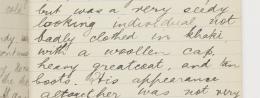 but was a very seedy
looking individual, not
badly clothed in khaki
with a woollen cap,
heavy greatcoat, and
boots. His appearance
altogether was not very